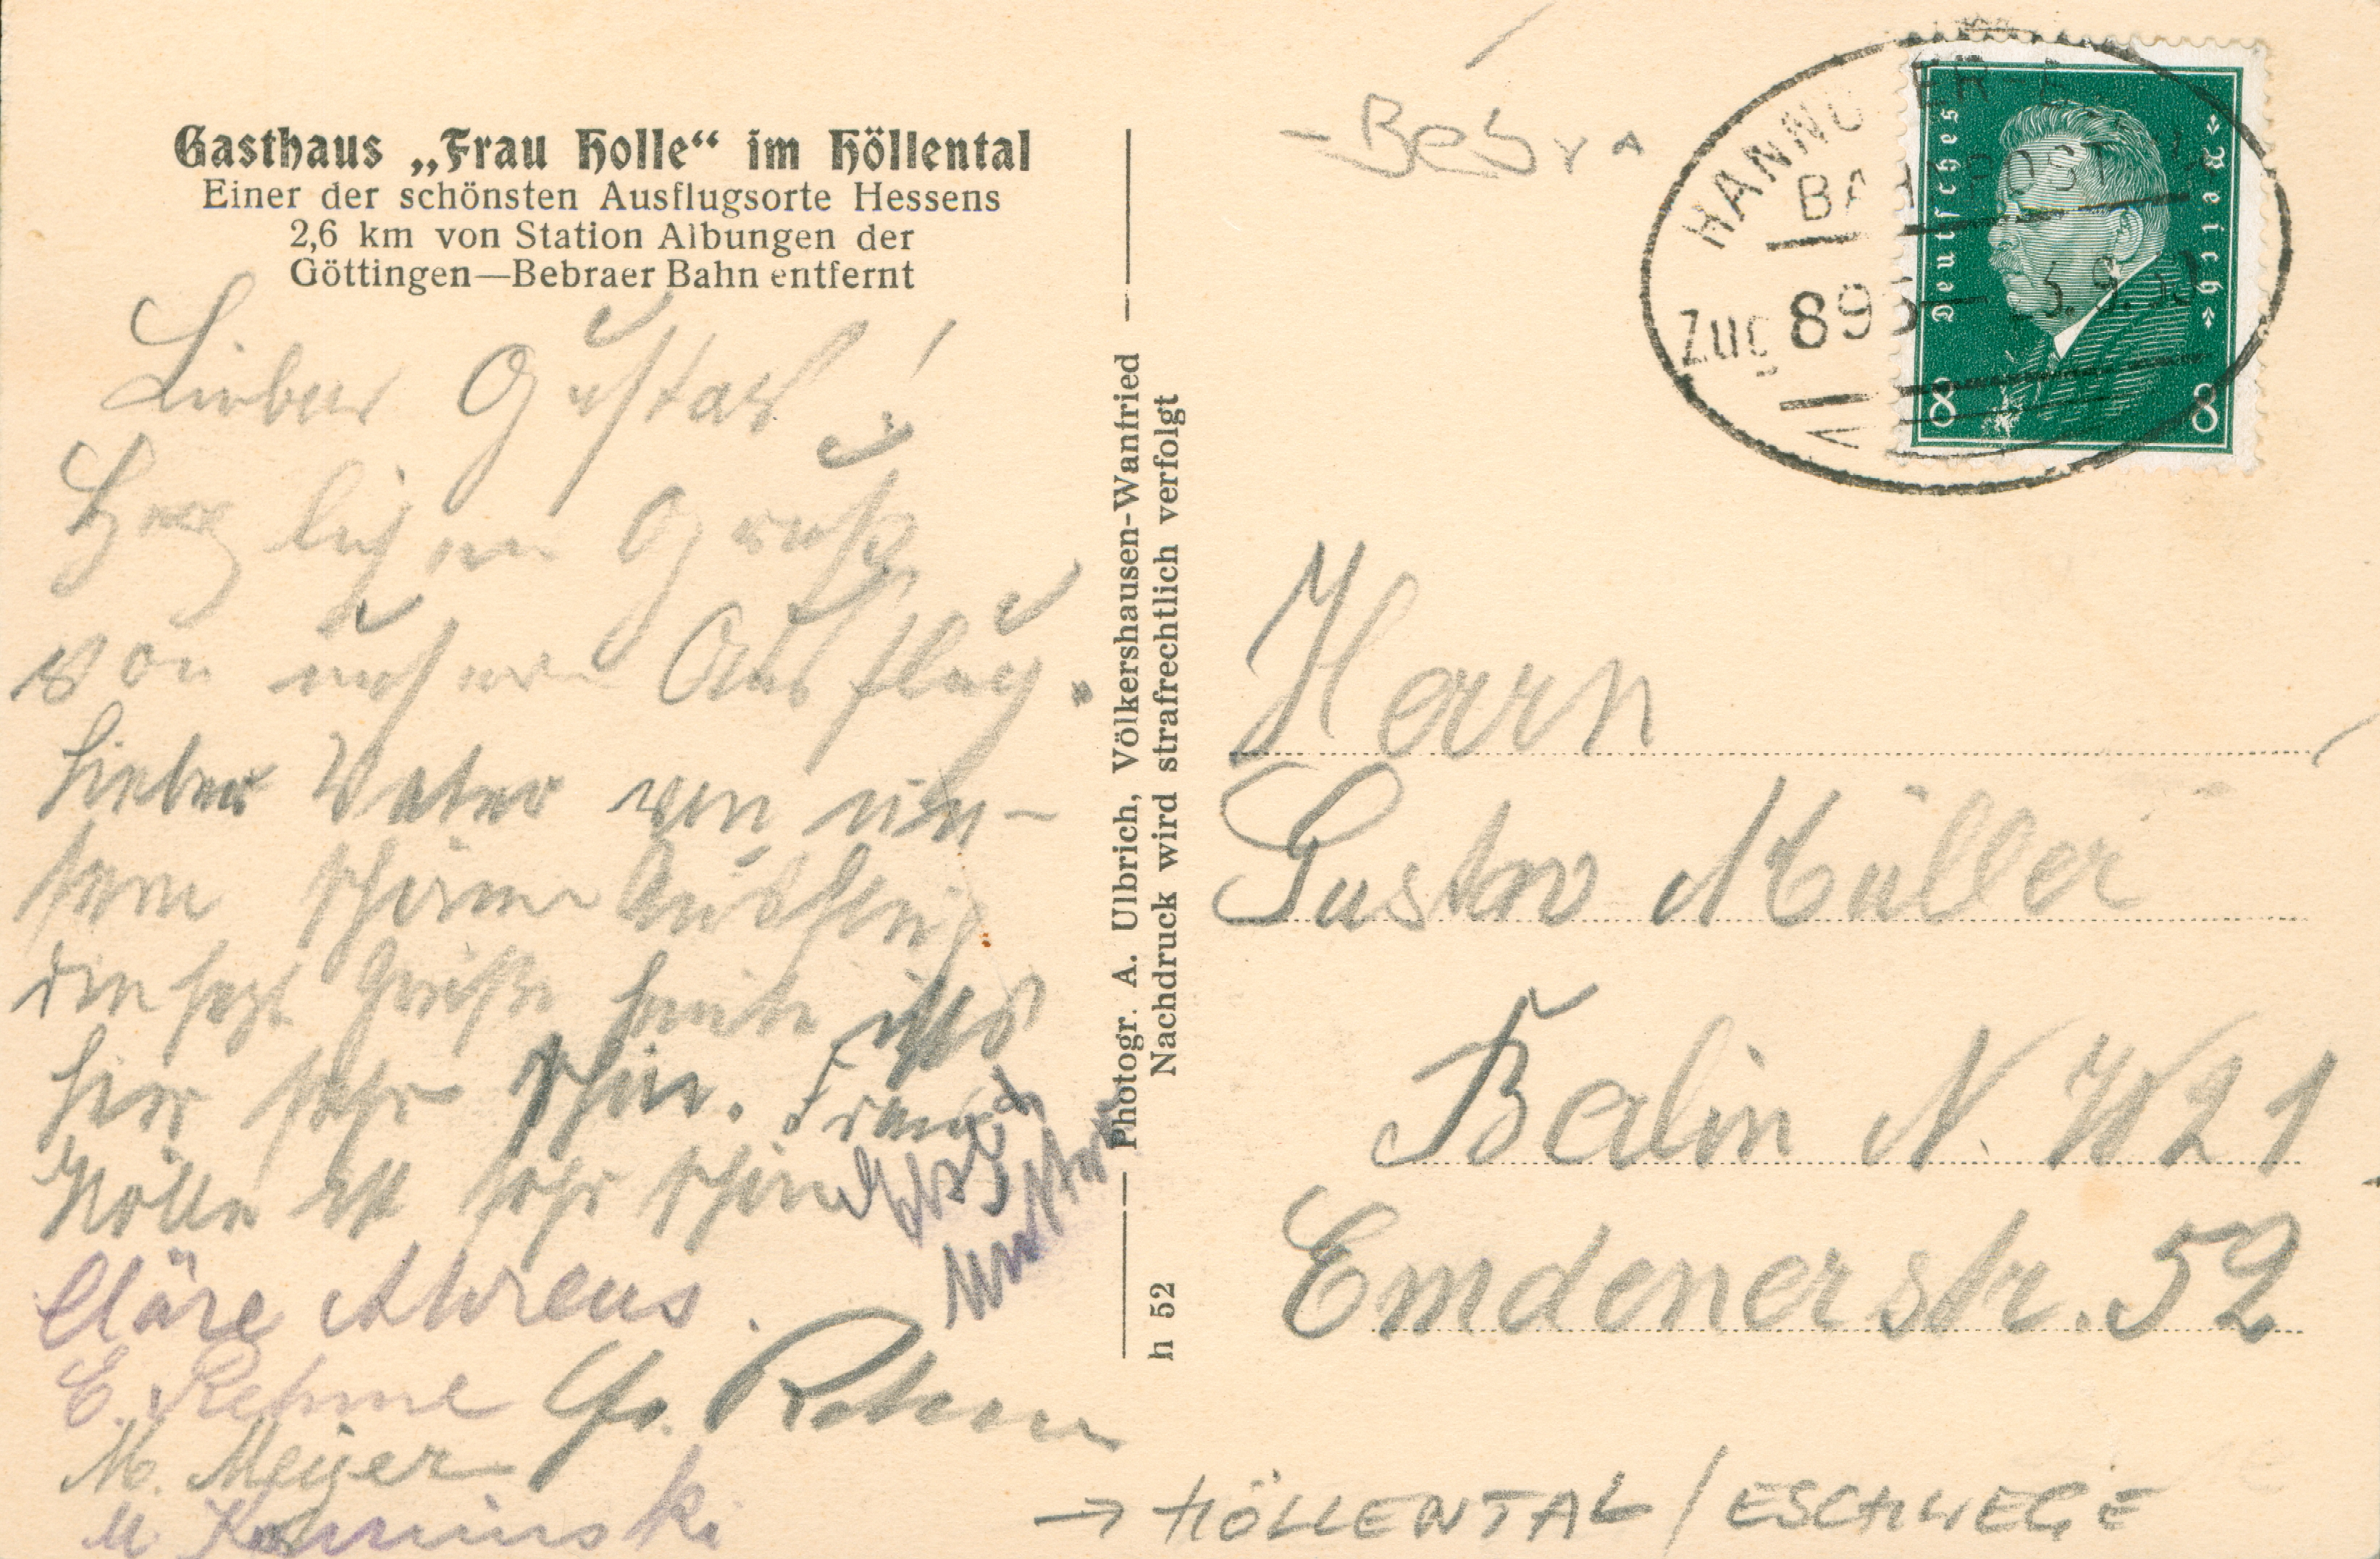 Gasthaus „Frau Holle“ im Höllental
Einer der schönsten Ausflugsorte Hessens
2,6 km von Station Albungen der
Göttingen—Bebraer Bahn entfernt
Lieber Gustav!
Herzlichen Gruß
von unseren Ausflug.
Lieber Vater von un-
sern schönen Ausflug
die Grüße heute ist es
hier sehr schön. Frau
Hölle ist sehr schön
Cläre Ahrens.
E. Rehme Gr. Rehme
M. Meyer
M
Photogr. A. Ulbrich, Völkershausen-Wanfried
Nachdruck wird strafrechtlich verfolgt
h 52
- Bebra
HANNOVER-
BAHNPOST
Zug 895
5.9.30
Deutsches Reich
8 8
Herrn
Gustav Müller
Berlin N.W 21
Emdenerstr. 52
→ HÖLLENTAL / ESCHWEGE